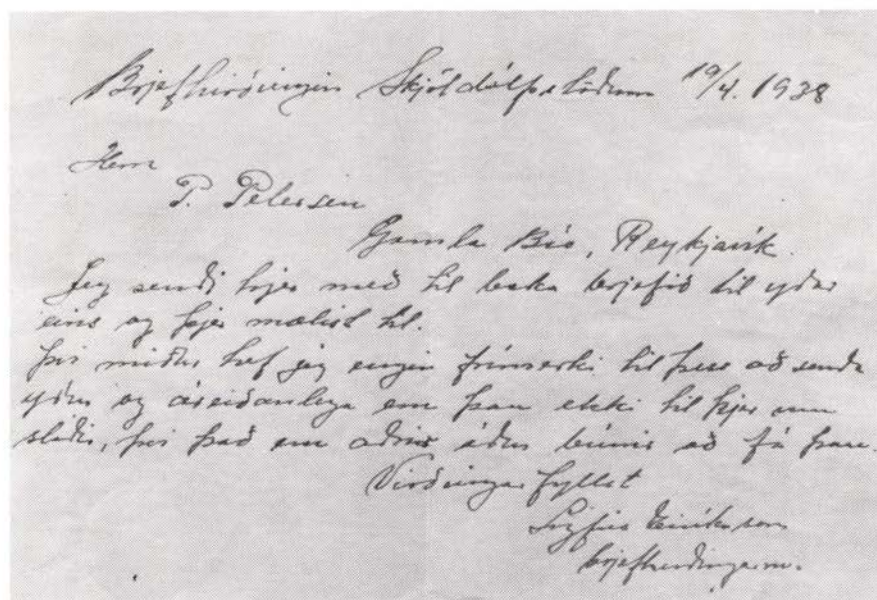 Brjefhirðingin Skjöldólfsstöðum 19/4. 1938
Herra
P. Petersen
Gamla Bíó, Reykjavík.
Jeg sendi hjer með til baka brjefið til yðar
eins og þjer mælist til.
Því miður hef jeg engin frímerki til þess að senda
yður og áreiðanlega eru þau ekki til hjer um
slóðir, því það eru aðrir áður búnir að fá þau.
Virðingarfyllst
Sigfús Eiríksson